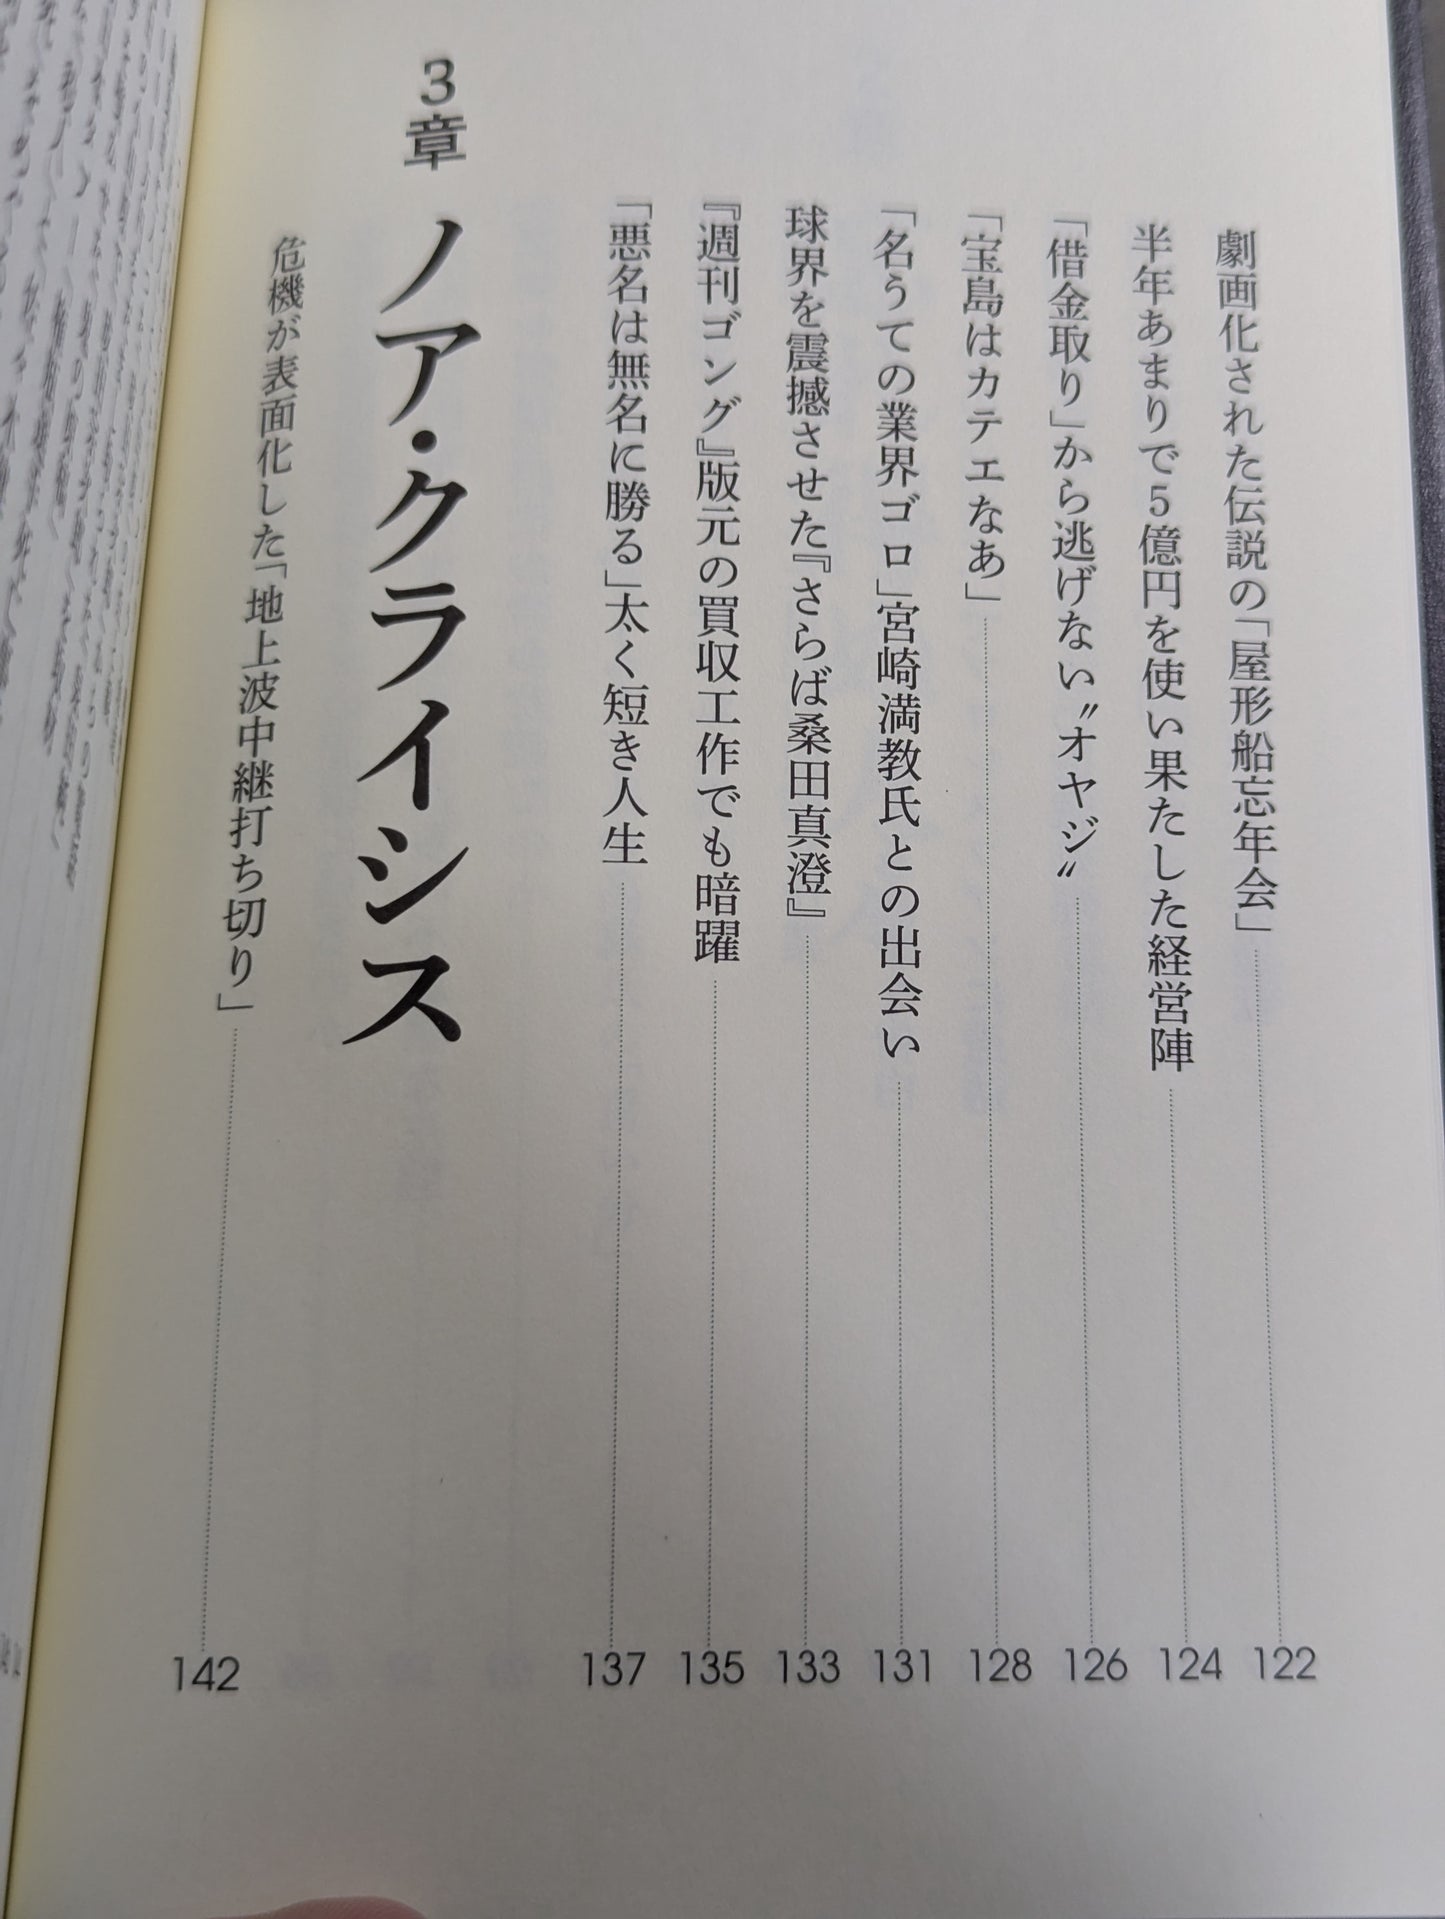 劇画化された伝説の「屋形船忘年会」 122
半年あまりで5億円を使い果たした経営陣 124
「借金取り」から逃げない〝オヤジ〟 126
「宝島はカテエなあ」 128
「名うての業界ゴロ」宮崎満教氏との出会い 131
球界を震撼させた『さらば桑田真澄』 133
『週刊ゴング』版元の買収工作でも暗躍 135
「悪名は無名に勝る」太く短き人生 137
3章 ノア・クライシス
危機が表面化した「地上波中継打ち切り」 142